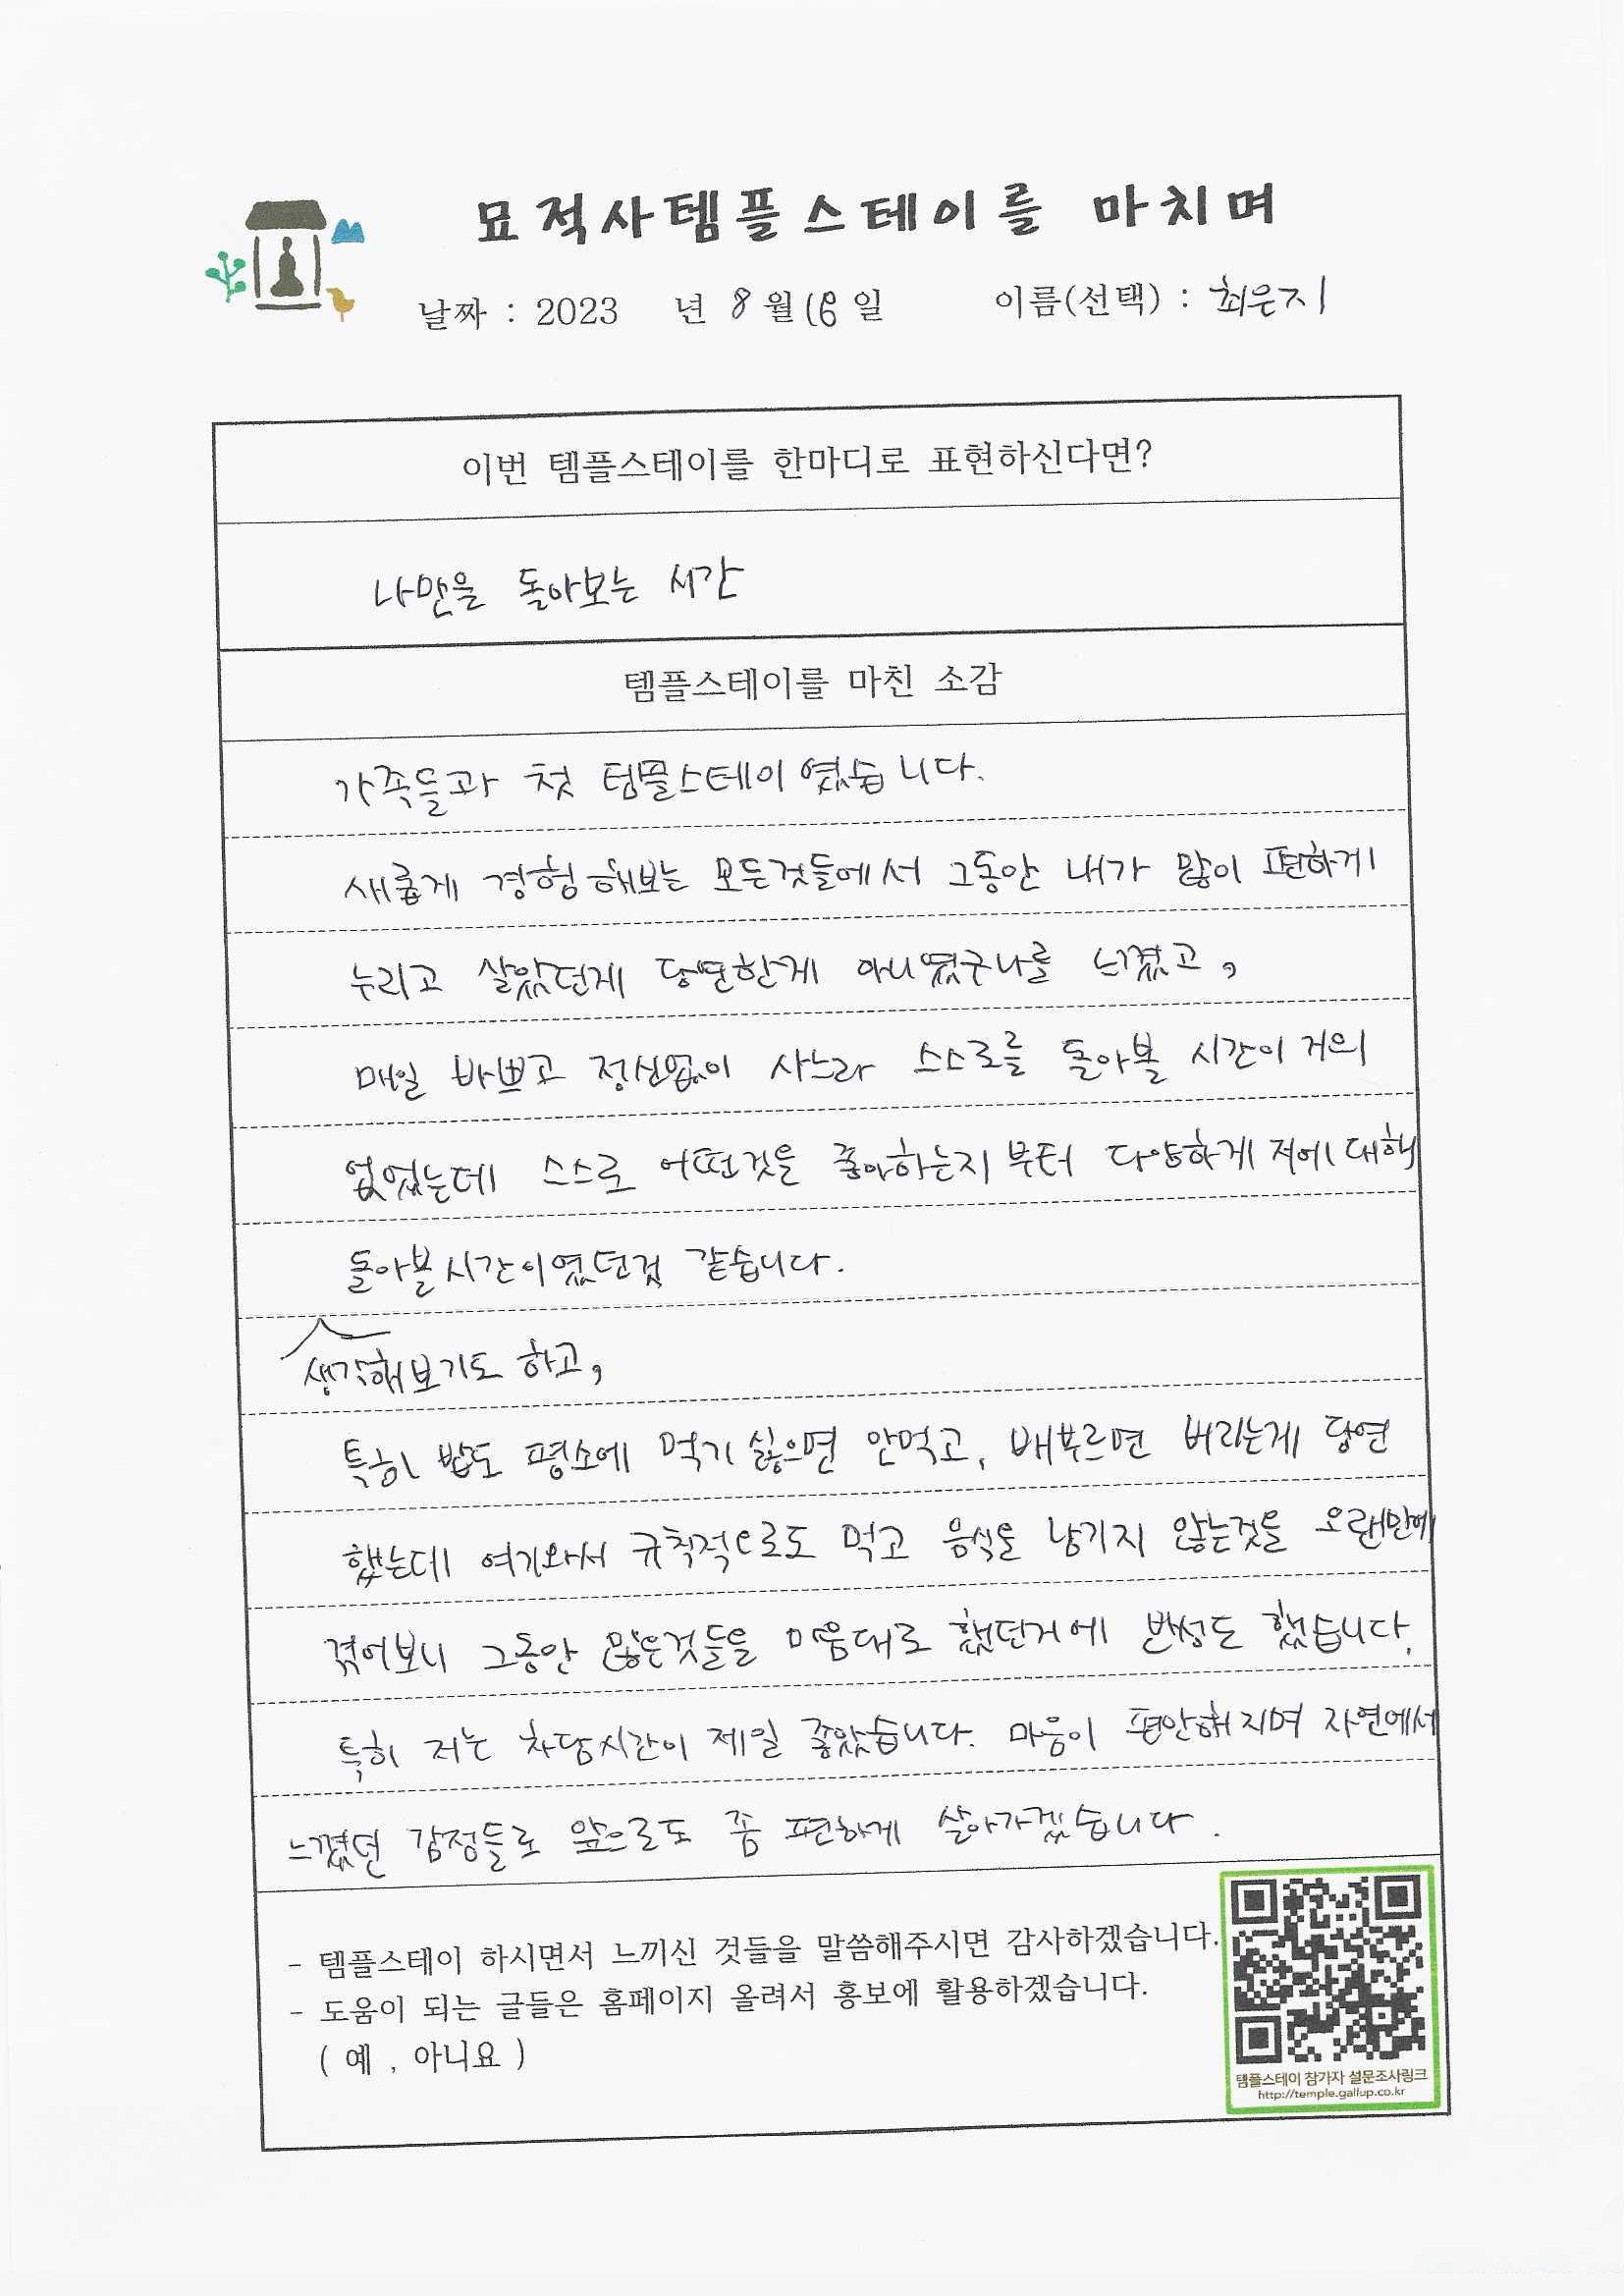 묘적사템플스테이를 마치며
날짜 : 2023 년 8 월 16 일 이름(선택) : 최은지
이번 템플스테이를 한마디로 표현하신다면?
나만을 돌아보는 시간
템플스테이를 마친 소감
가족들과 첫 템플스테이였습니다.
새롭게 경험해보는 모든것들에서 그동안 내가 많이 편하게
누리고 살았던게 당연한게 아니였구나를 느꼈고,
매일 바쁘고 정신없이 사느라 스스로를 돌아볼 시간이 거의
없었는데 스스로 어떤것을 좋아하는지부터 다양하게 저에 대해
돌아볼 시간이였던것 같습니다.
생각해보기도 하고,
특히 밥도 평소에 먹기 싫으면 안먹고, 배부르면 버리는게 당연
했는데 여기와서 규칙적으로도 먹고 음식을 남기지 않는것을 오랜만에
겪어보니 그동안 많은것들을 마음대로 했던거에 반성도 했습니다.
특히 저는 차담시간이 제일 좋았습니다. 마음이 편안해지며 자연에서
느꼈던 감정들로 앞으로도 좀 편하게 살아가겠습니다.
- 템플스테이 하시면서 느끼신 것들을 말씀해주시면 감사하겠습니다.
- 도움이 되는 글들은 홈페이지 올려서 홍보에 활용하겠습니다.
( 예 , 아니요 )
템플스테이 참가자 설문조사링크
http://temple.gallup.co.kr